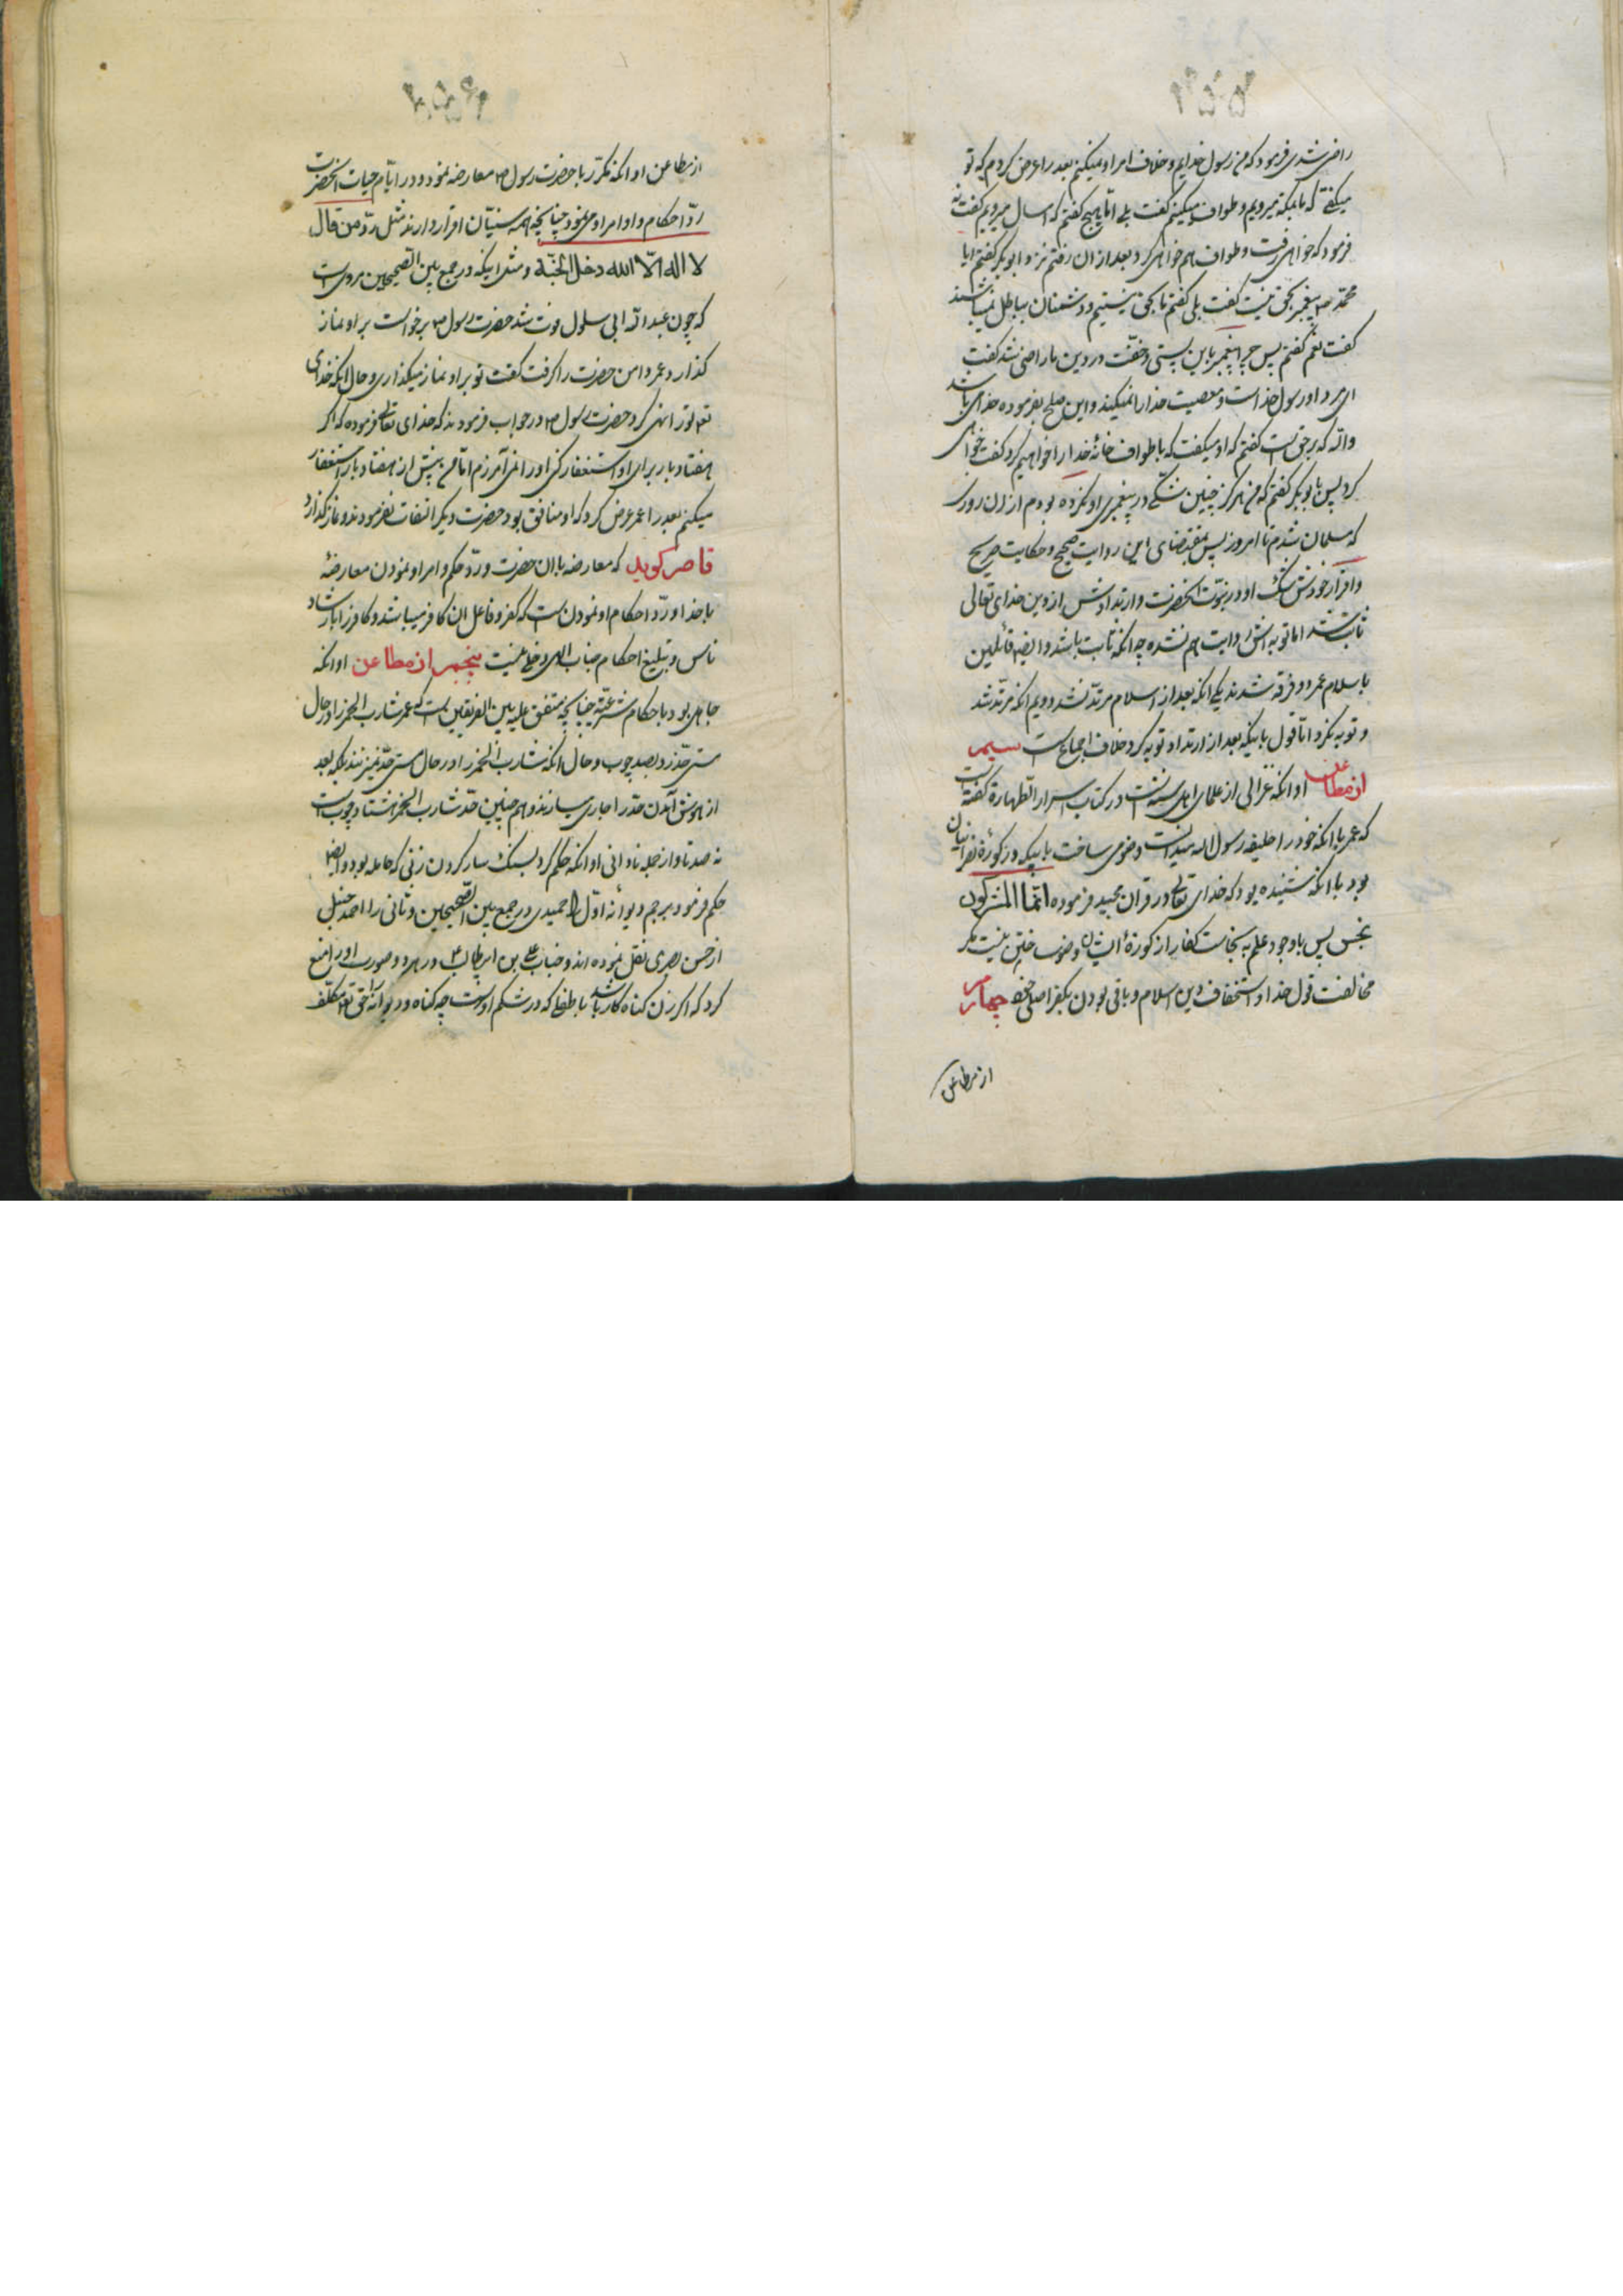 راضی شدی فرمود که من رسول خدایم و خلاف امر او نمیکنم بعد را عرض کردم که تو
میگفتی که ما بمکه میرویم و طواف میکنیم گفت بلی اما هیچ گفتم که امسال میرویم گفت نه
فرمود که خواهی رفت و طواف هم خواهی کرد و بعد از ان رفتم نزد ابو بکر گفتم ایا
محمد ص پیغمبر بحق نیست گفت بلی گفتم ما بحق نیستیم و دشمنان بباطل نمیباشند
گفت نعم گفتم پس چرا پیغمبر باین پستی و خفّت در دین ما راضی شد گفت
ای مرد او رسول خداست و معصیت خدا را نمیکند و این صلح بفرموده خدای باشد
والله که برحق است گفتم که او میگفت که با طواف خانهٔ خدا را خواهیم کرد گفت خواهی
کرد پس با بوبکر گفتم که من هرگز چنین شکی در پیغمبری او نکرده بودم از ان روزی
که مسلمان شدم تا امروز پس بمقتضای این روایت صحیح و حکایت صریح
و اقرار خودش شک او در نبوّت انحضرت و ارتدادش از دین خدای تعالی
ثابت شد اما توبه اش روایت هم نشده چه انکه ثابت باشد و ایضا قائلین
باسلام عمر دو فرقه شدند یکی انکه بعد از اسلام مرتدّ نشد دویم انکه مرتدّ شد
و توبه نکرد امّا قول باینکه بعد از ارتداد توبه کرد خلاف اجماع است سیم
از مطاعن او انکه غزالی از علمای اهل سنّت است در کتاب اسرار الطهارة گفته
که عمر با انکه خود را خلیفه رسول الله میدانست وضو می ساخت بابیکه در کوزهٔ نصرانیان
بود با انکه شنیده بود که خدای تعالی در قران مجید فرموده انما المشرکون
نجس پس باوجود علم به نجاست کفار از کوزهٔ ایشان وضو ساختن نیست مگر
مخالفت قول خدا و استخفاف دین اسلام و باقی بودن بکفر اصلی خود چهارم
از مطاعن
از مطاعن او انکه مکرّر با حضرت رسول ص معارضه نمود و در ایّام حیات انحضرت
ردّ احکام و اوامر او می نمود چنانچه همه سنیّان اقرار دارند مثل ردّ من قال
لا اله الّا الله دخل الجنّة و مثل اینکه در جمع بین الصحیحین مرویست
که چون عبد الله ابی سلول فوت شد حضرت رسول ص برخواست بر او نماز
گذارد عمر دامن حضرت را گرفت گفت تو بر او نماز میگذاری و حال انکه خدای
تعالی تو را نهی کرد حضرت رسول ص در جواب فرمودند که خدای تعالی فرموده که اگر
هفتاد بار برای او استغفار کنی او را نمی آمرزم امّا من بیش از هفتاد بار استغفار
میکنم بعد را عمر عرض کرد که او منافق بود حضرت دیگر التفات نفرمودند و نماز گذارد
قاصر گوید که معارضه با ان حضرت و ردّ حکم و امر او نمودن معارضهٔ
با خدا و ردّ احکام او نمودن است که کفر و فاعل ان کافر میباشد و کافر را بارشاد
ناس و تبلیغ احکام جناب الهی دخلی نیست پنجم از مطاعن او انکه
جاهل بود باحکام شرعیّه چنانچه متفق علیه بین الفریقین است که عمر شارب الخمر را در حال
مستی حدّ زد بصد چوب و حال انکه شارب الخمر را در حال مستی حدّ نمیزنند بلکه بعد
از هوش آمدن حدّ را جاری سازند و هم چنین حدّ شارب الخمر هشتاد چوب است
نه صد تا و از جمله نادانی او انکه حکم کرد بسنک سار کردن زنی که حامله بود و ایضا
حکم فرمود برجم دیوانه اوّل را حمیدی در جمع بین الصحیحین و ثانی را احمد حنبل
از حسن بصری نقل نموده اند و جناب علی بن ابیطالب ع در هر دو صورت او را منع
کرد که اگر زن گناه کار باشد با طفلی که در شکم اوست چه گناه و دیوانه را حق تعالی مکلّف